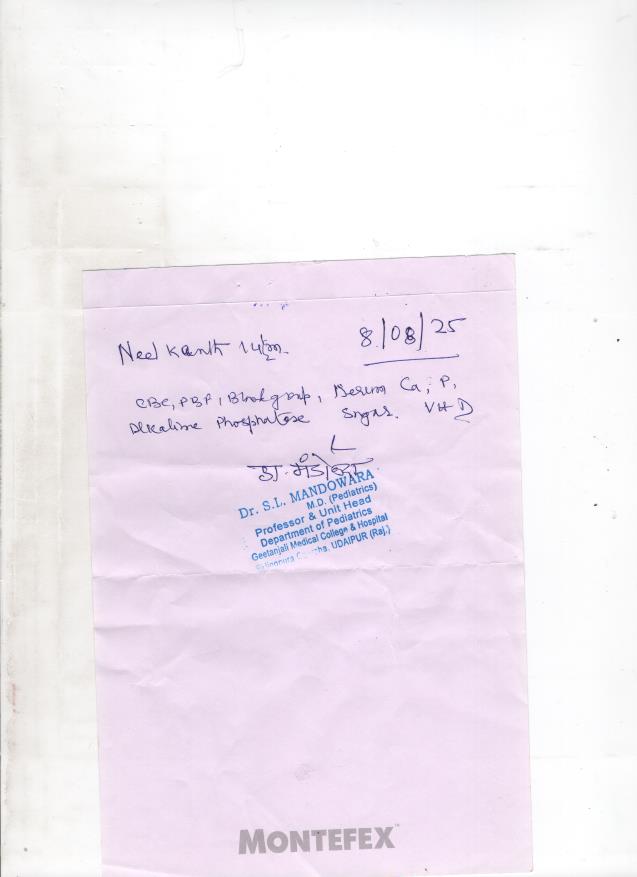 Neel Kanth 14
8/08/25
CBC, PBF, Blood group, Serum Ca, P,
Alkaline Phosphatase Sugar. Vit D
डा. मंडोवरा
Dr. S.L. MANDOWARA
M.D. (Pediatrics)
Professor & Unit Head
Department of Pediatrics
Geetanjali Medical College & Hospital
UDAIPUR (Raj.)
MONTEFEX™